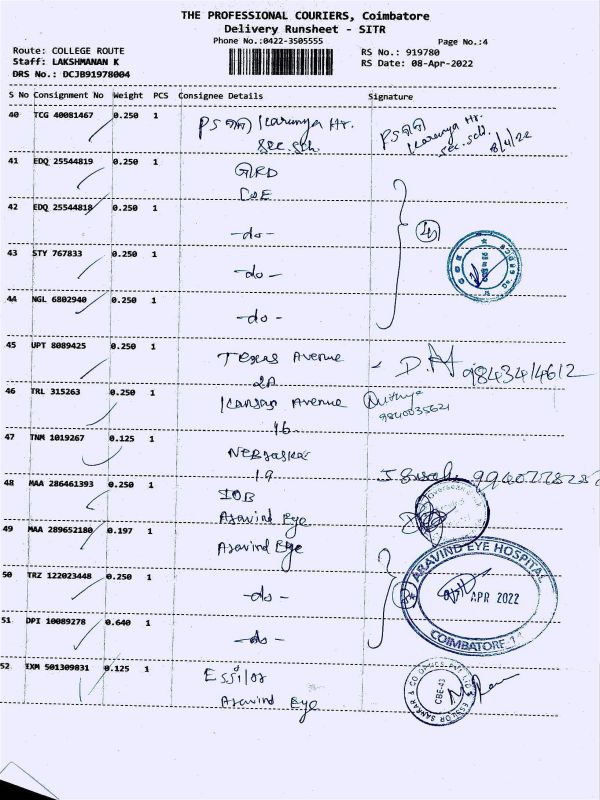 THE PROFESSIONAL COURIERS, Coimbatore
Delivery Runsheet - SITR
Phone No.:0422-3505555
Page No.:4
Route: COLLEGE ROUTE
RS No.: 919780
Staff: LAKSHMANAN K
RS Date: 08-Apr-2022
DRS No.: DCJB91978004
S No Consignment No Weight PCS Consignee Details Signature
40 TCG 40081467 0.250 1 Karunya Hr.
Sec. Sch.
Karunya Hr.
Sec. Sch.
8/4/22
41 EDQ 25544819 0.250 1 GRD
COE
42 EDQ 25544818 0.250 1 -do-
43 STY 767833 0.250 1 -do-
44 NGL 6802940 0.250 1 -do-
45 UPT 8089425 0.250 1 Texas Avenue
2A
46 TRL 315263 0.250 1 Kansas Avenue
16
47 TNM 1019267 0.125 1 Nebraskar
19
48 MAA 286461393 0.250 1 IOB
Aravind Eye
49 MAA 289652180 0.197 1 Aravind Eye
ARAVIND EYE HOSPITAL
APR 2022
COIMBATORE-14
50 TRZ 122023448 0.250 1 -do-
51 DPI 10089278 0.640 1 -do-
52 EXM 501309831 0.125 1 Essilor
Aravind Eye
CBE-43